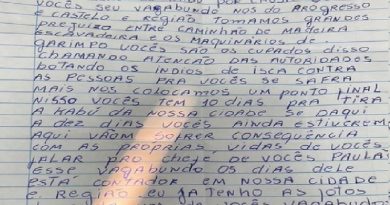 VOCÊS SEU VAGABUNDO NOS DO PROGRESSO
E CASTELO E REGIÃO TOMAMOS GRANDES
PREJUIZO ENTRE CAMINHÃO DE MADEIRA
ESCAVADEIRA E OS MAQUINARIOS DE
GARIMPO VOCÊS SÃO OS CUPADOS DISSO
CHAMANDO ATENÇÃO DAS AUTORIDADES
BOTANDO OS INDIOS DE ISCA CONTRA
AS PESSOAS PRA VOCÊS SE SAFRA
MAIS NOS COLOCAMOS UM PONTO FINAL
NISSO VOCÊS TEM 10 DIAS PRA TIRA
A KABÚ DA NOSSA CIDADE SE DAQUI
A DEZ DIAS VOCÊS AINDA ESTIVEREM
AQUI VÃOM SOFRER CONSEQUÊNCIA
COM AS PROPRIAS VIDAS DE VOCÊS
FALAR PRO CHEFE DE VOCÊS PAULA
ESSE VAGABUNDO OS DIAS DELE
ESTA CONTADOR EM NOSSA CIDADE
E REGIÃO EU JA TENHO AS FOTOS